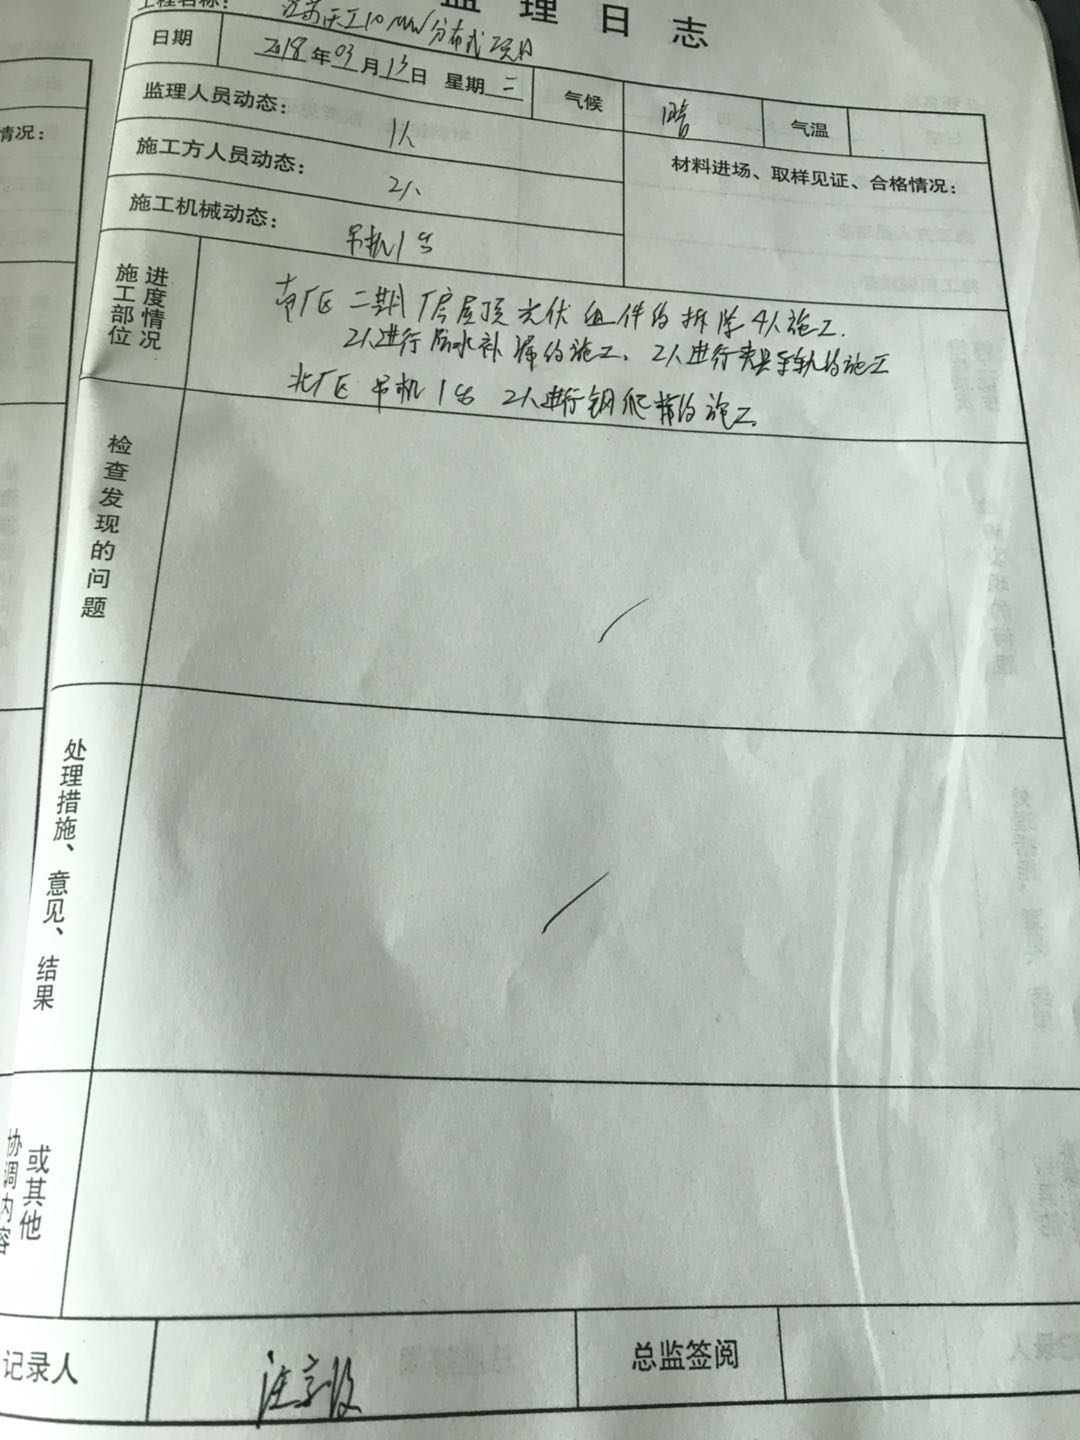 监理日志
工程名称： 江苏天工10MW分布式项目
日期 2018年03月13日 星期二 气候 晴 气温
监理人员动态： 1人
施工方人员动态： 2人
材料进场、取样见证、合格情况：
施工机械动态： 吊机1台
施工部位进度情况
南厂区 二期厂房屋顶光伏组件的拆除4人施工.
2人进行防水补漏的施工、2人进行夹具导轨的施工
北厂区 吊机1台 2人进行钢爬梯的施工。
检查发现的问题
处理措施、意见、结果
协调内容或其他
记录人
总监签阅
情况：